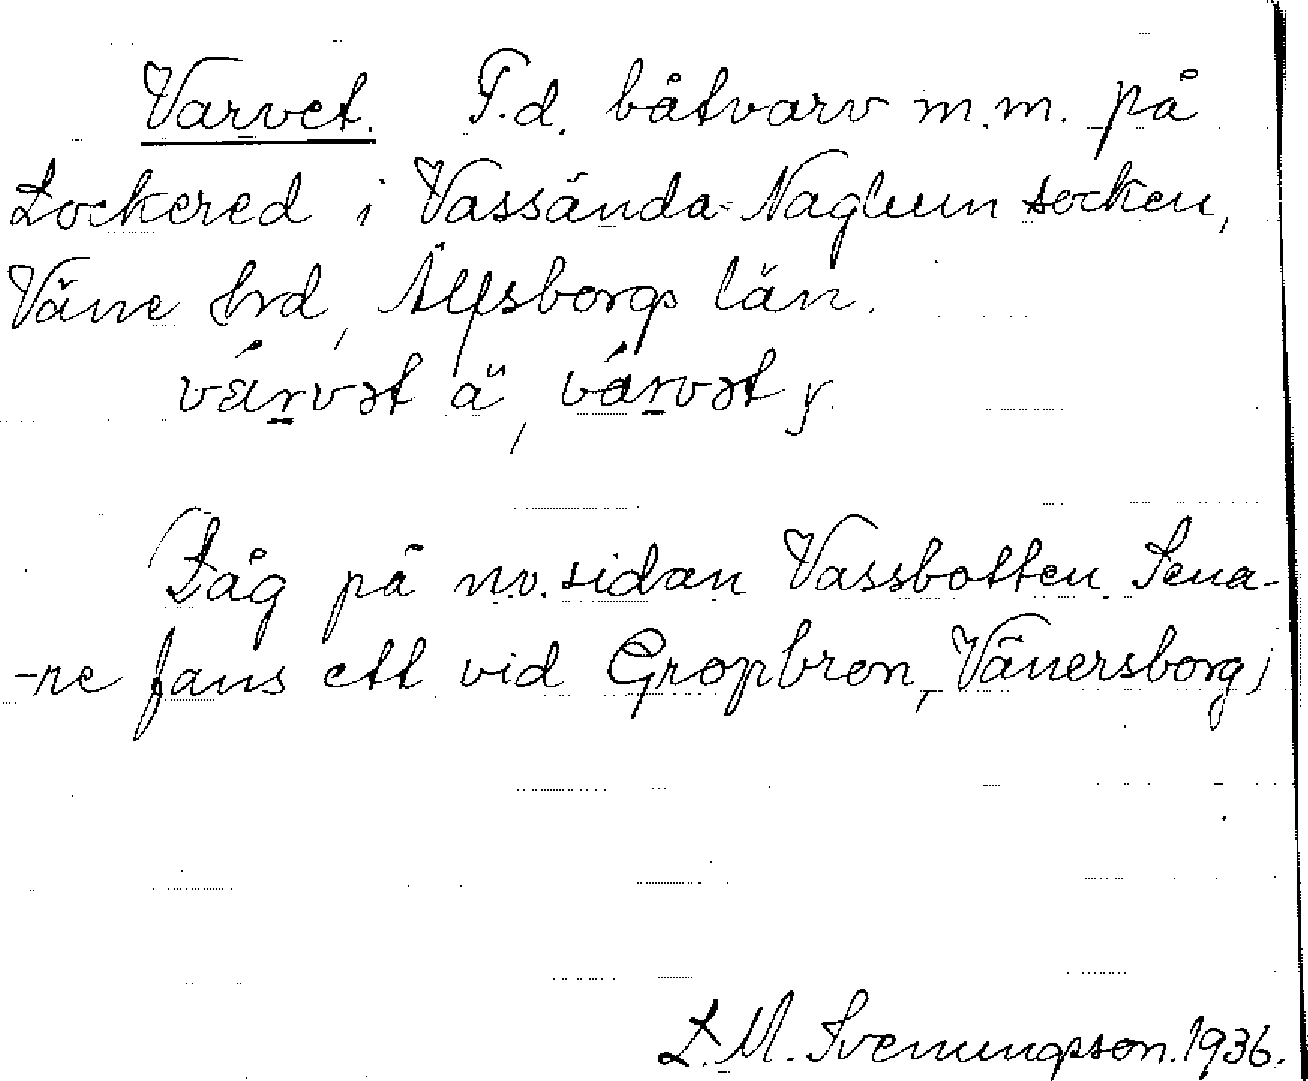 Varvet. F.d. båtvarv m.m. på
Lockered i Vassända-Naglum socken,
Väne hrd, Älfsborgs län.
várvət ä, várvət y.
Låg på n.v. sidan Vassbotten. Sena-
-re fans ett vid Gropbron, Vänersborg;
L. M. Svenungsson. 1936.